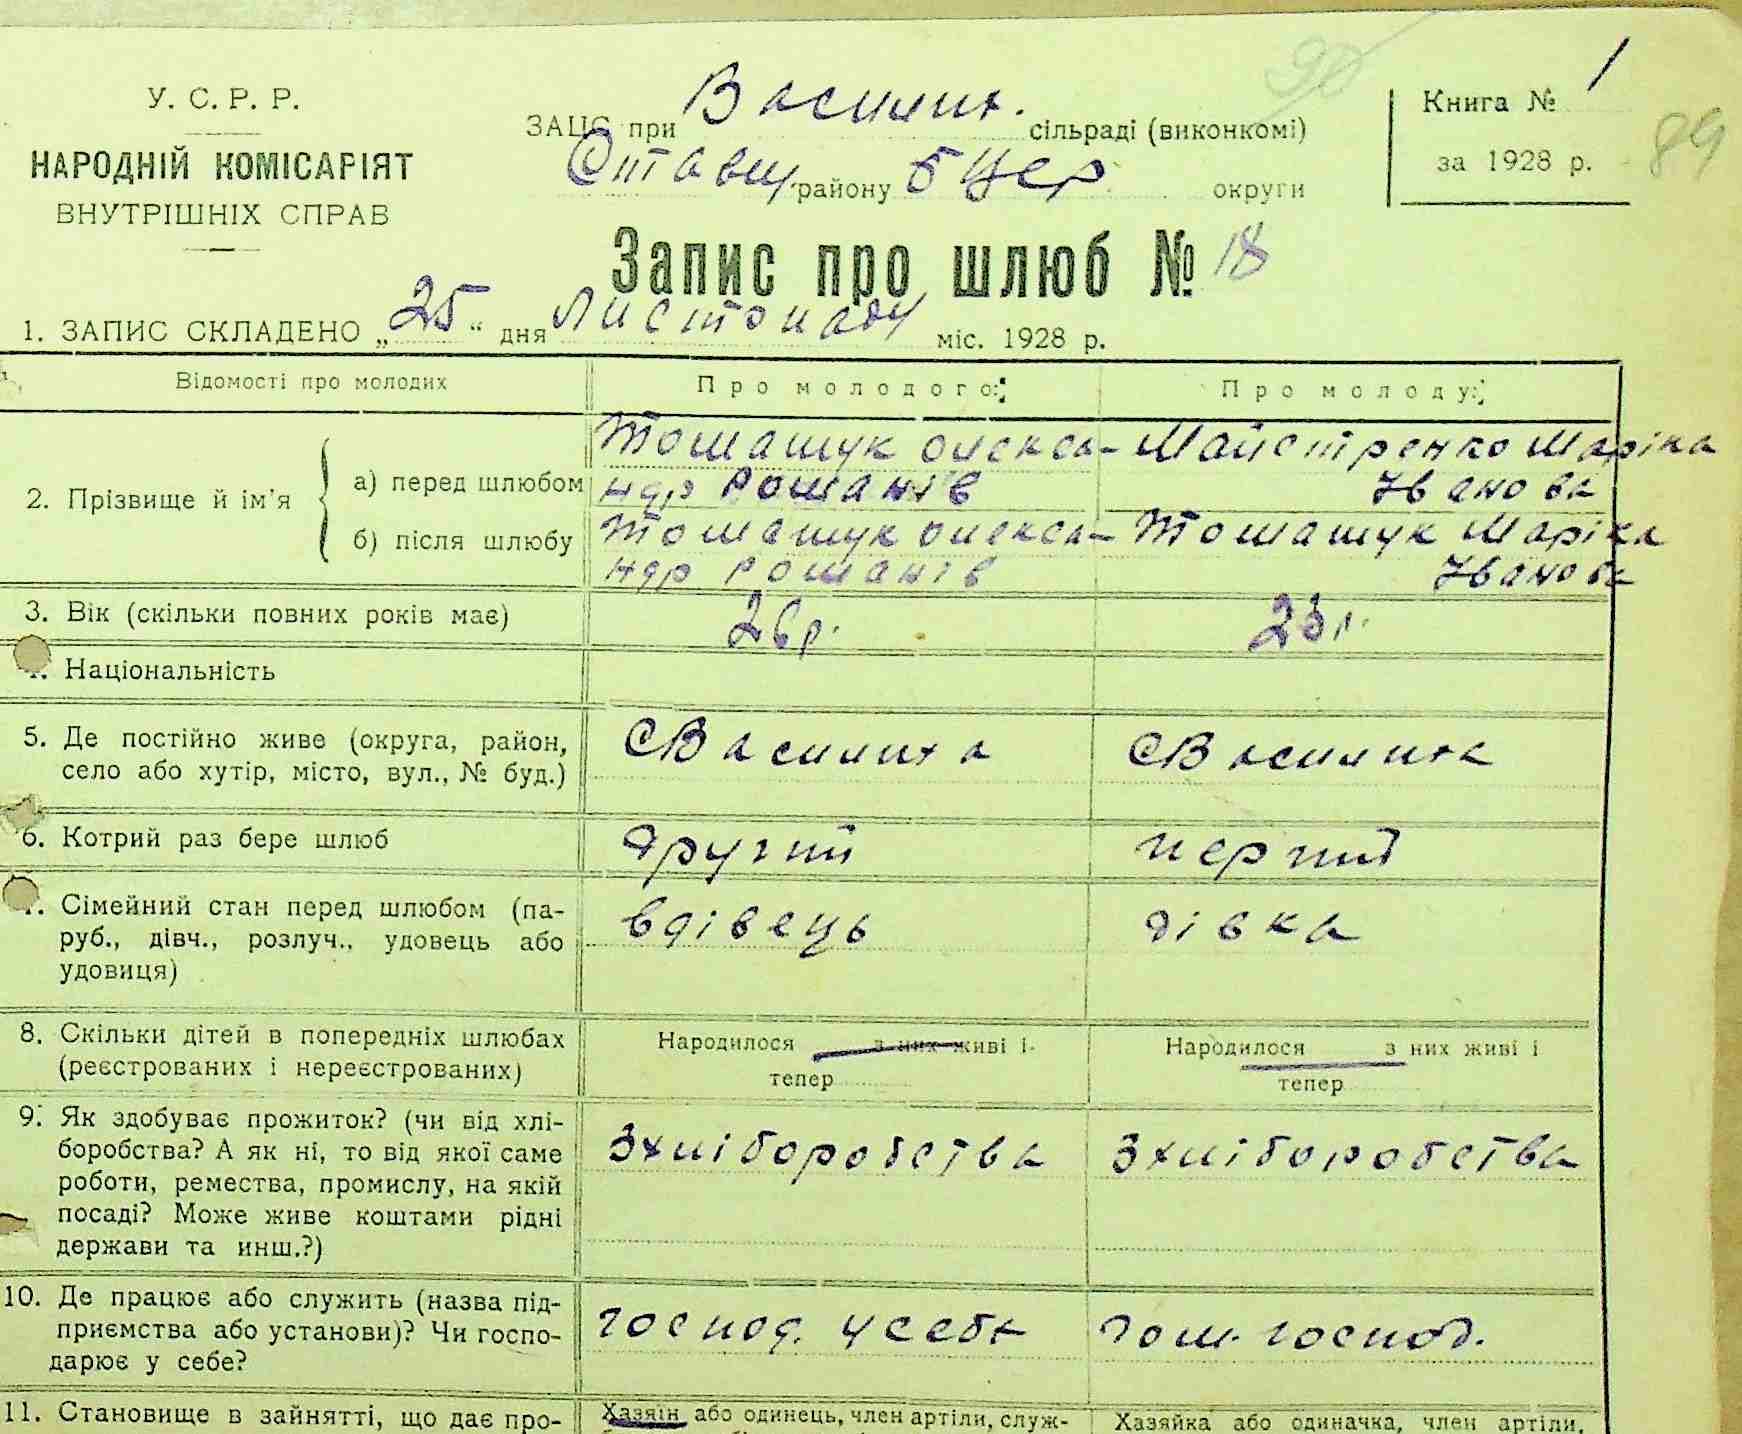 90
1
У. С. Р. Р.
ЗАЦС при Василих. сільраді (виконкомі)
Книга №
89
НАРОДНІЙ КОМІСАРІЯТ
Ставищ району БЦер округи
за 1928 р.
ВНУТРІШНІХ СПРАВ
Запис про шлюб № 18
1. ЗАПИС СКЛАДЕНО „25“ дня Листопаду міс. 1928 р.
Відомості про молодих
Про молодого:
Про молоду:
2. Прізвище й ім’я
а) перед шлюбом
Томащук Олекса-
ндр Романів
Майстренко Маріка
Іванова
б) після шлюбу
Томащук Олекса-
ндр Романів
Томащук Маріка
Іванова
3. Вік (скільки повних років має)
26 р.
23 р.
4. Національність
5. Де постійно живе (округа, район,
село або хутір, місто, вул., № буд.)
С Василиха
С Василиха
6. Котрий раз бере шлюб
другий
перший
7. Сімейний стан перед шлюбом (па-
руб., дівч., розлуч., удовець або
удовиця)
вдівець
дівка
8. Скільки дітей в попередніх шлюбах
(реєстрованих і нереєстрованих)
Народилося з них живі і
тепер
Народилося з них живі і
тепер
9. Як здобуває прожиток? (чи від хлі-
боробства? А як ні, то від якої саме
роботи, ремества, промислу, на якій
посаді? Може живе коштами рідні
держави та инш.?)
З хліборобства
З хліборобства
10. Де працює або служить (назва під-
приємства або установи)? Чи госпо-
дарює у себе?
господ. у себе
дом. господ.
11. Становище в зайнятті, що дає про-
Хазяїн або одинець, член артіли, служ-
Хазяйка або одиначка, член артіли,